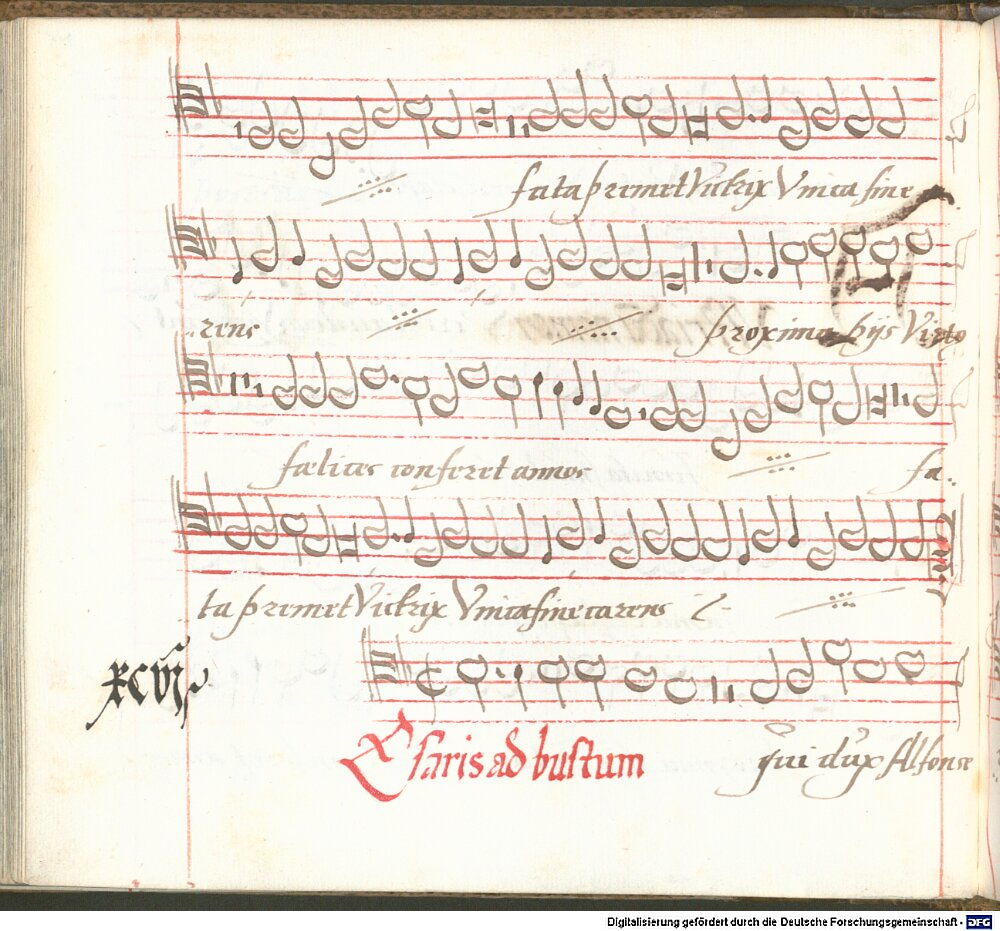 fata premet Victrix Vnica sine
rens proxima hijs Virto
fælices conferet annos fa
ta premet Victrix Vnica sine carens
xcvij
Cęsaris ad bustum qui dux Alfonse
Digitalisierung gefördert durch die Deutsche Forschungsgemeinschaft - DFG